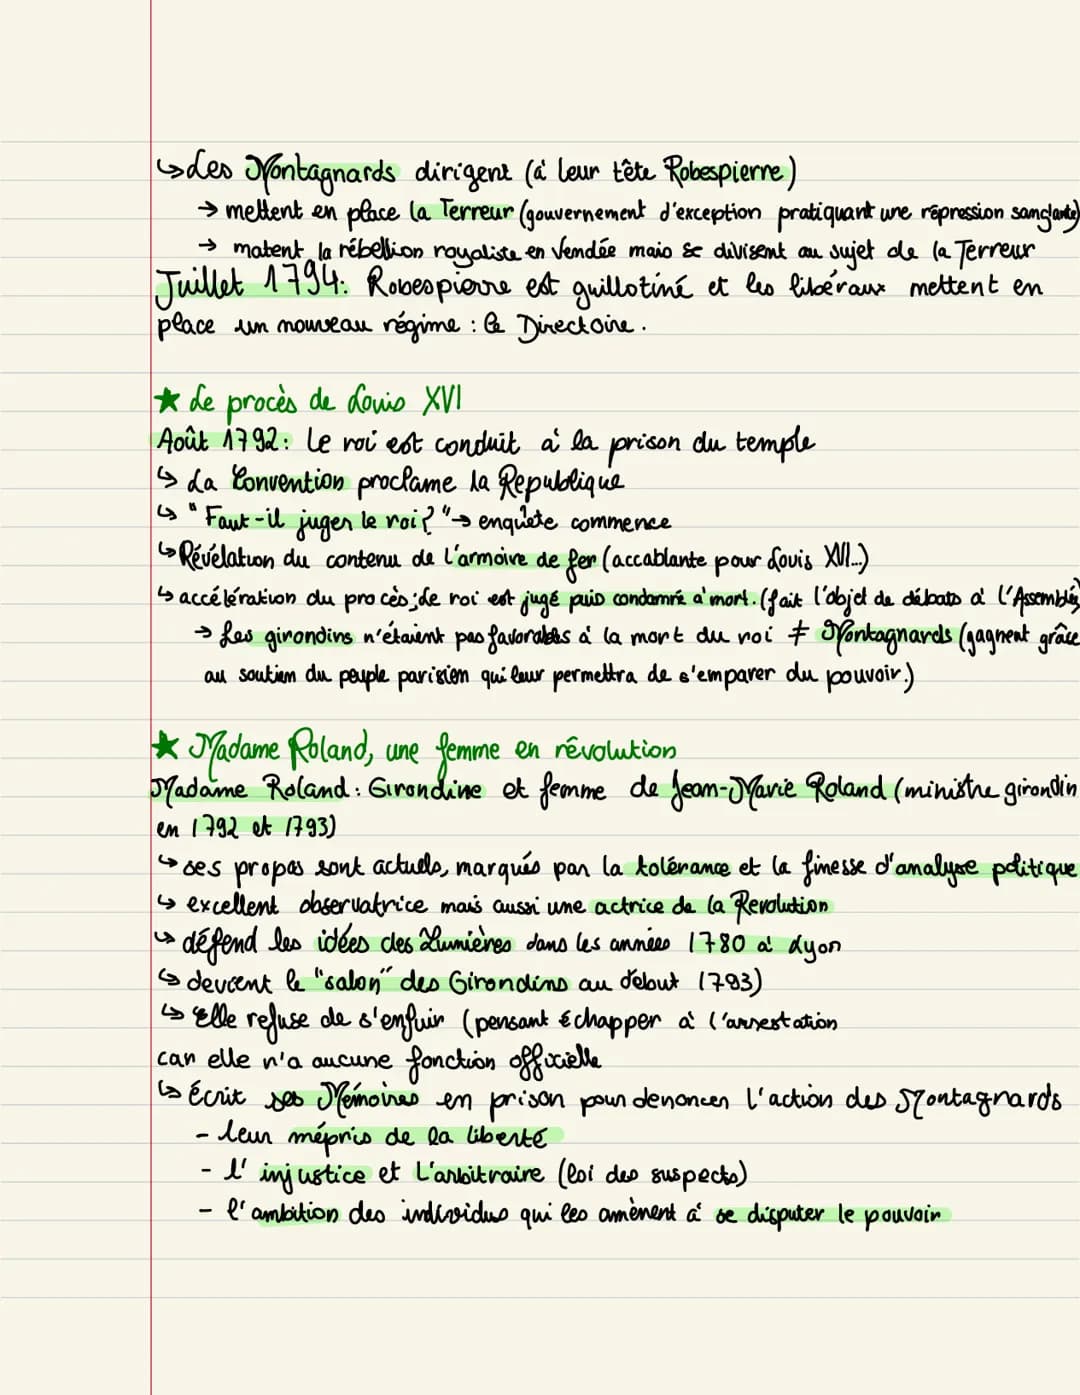 ↳ Les Montagnards dirigent (à leur tête Robespierre)
→ mettent en place la Terreur (gouvernement d'exception pratiquant une répression sanglante)
→ matent la rébellion royaliste en Vendée mais se divisent au sujet de la Terreur
Juillet 1794: Robespierre est guillotiné et les libéraux mettent en
place un nouveau régime : le Directoire.
★ Le procès de Louis XVI
Août 1792: Le roi est conduit à la prison du temple
↳ La Convention proclame la Republique
↳ "Faut-il juger le roi?" → enquête commence
↳ Révélation du contenu de l'armoire de fer (accablante pour Louis XVI...)
↳ accélération du procès; le roi est jugé puis condamné à mort. (fait l'objet de débats à l'Assemblée)
→ Les girondins n'étaient pas favorables à la mort du roi ≠ Montagnards (gagnent grâce
au soutien du peuple parisien qui leur permettra de s'emparer du pouvoir.)
★ Madame Roland, une femme en révolution
Madame Roland : Girondine et femme de Jean-Marie Roland (ministre girondin
en 1792 et 1793)
↳ ses propos sont actuels, marqués par la tolérance et la finesse d'analyse politique
↳ excellent observatrice mais aussi une actrice de la Revolution
↳ défend les idées des Lumières dans les années 1780 à Lyon
↳ devient le "salon" des Girondins au début 1793)
↳ Elle refuse de s'enfuir (pensant échapper à l'arrestation
car elle n'a aucune fonction officielle
↳ Écrit ses Mémoires en prison pour denoncer l'action des Montagnards
- leur mépris de la liberté
- l'injustice et L'arbitraire (loi des suspects)
- l'ambition des individus qui les amènent à se disputer le pouvoir